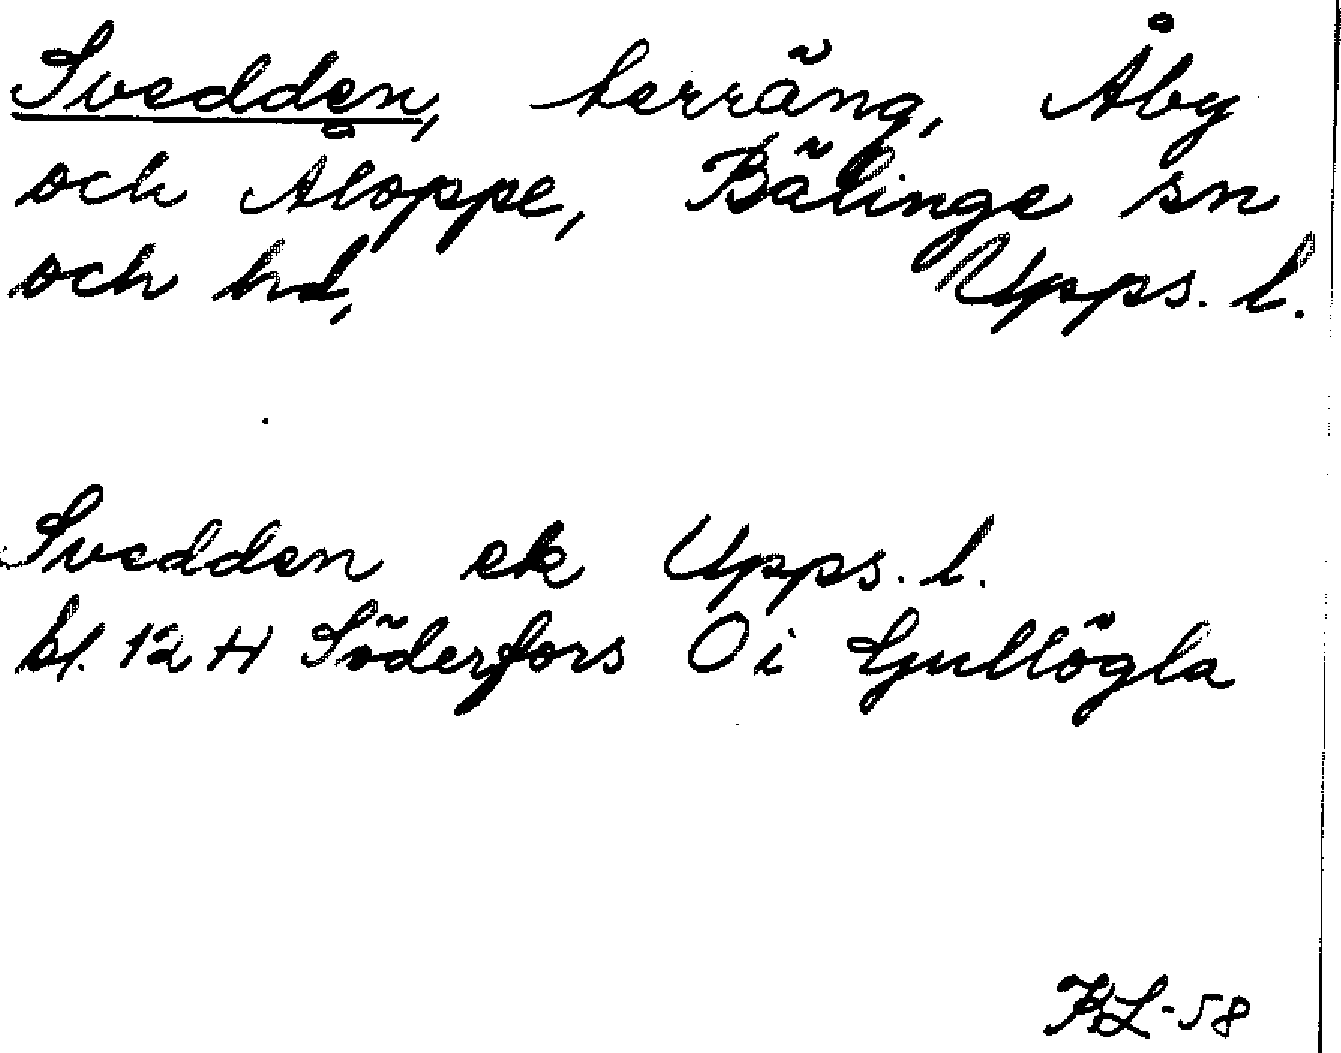 Svedden, terräng, Åby
och Åloppe, Bälinge sn
och hd, Upps. l.
Svedden ek Upps. l.
bl. 12 H Söderfors O i Ljullögla
KL-58